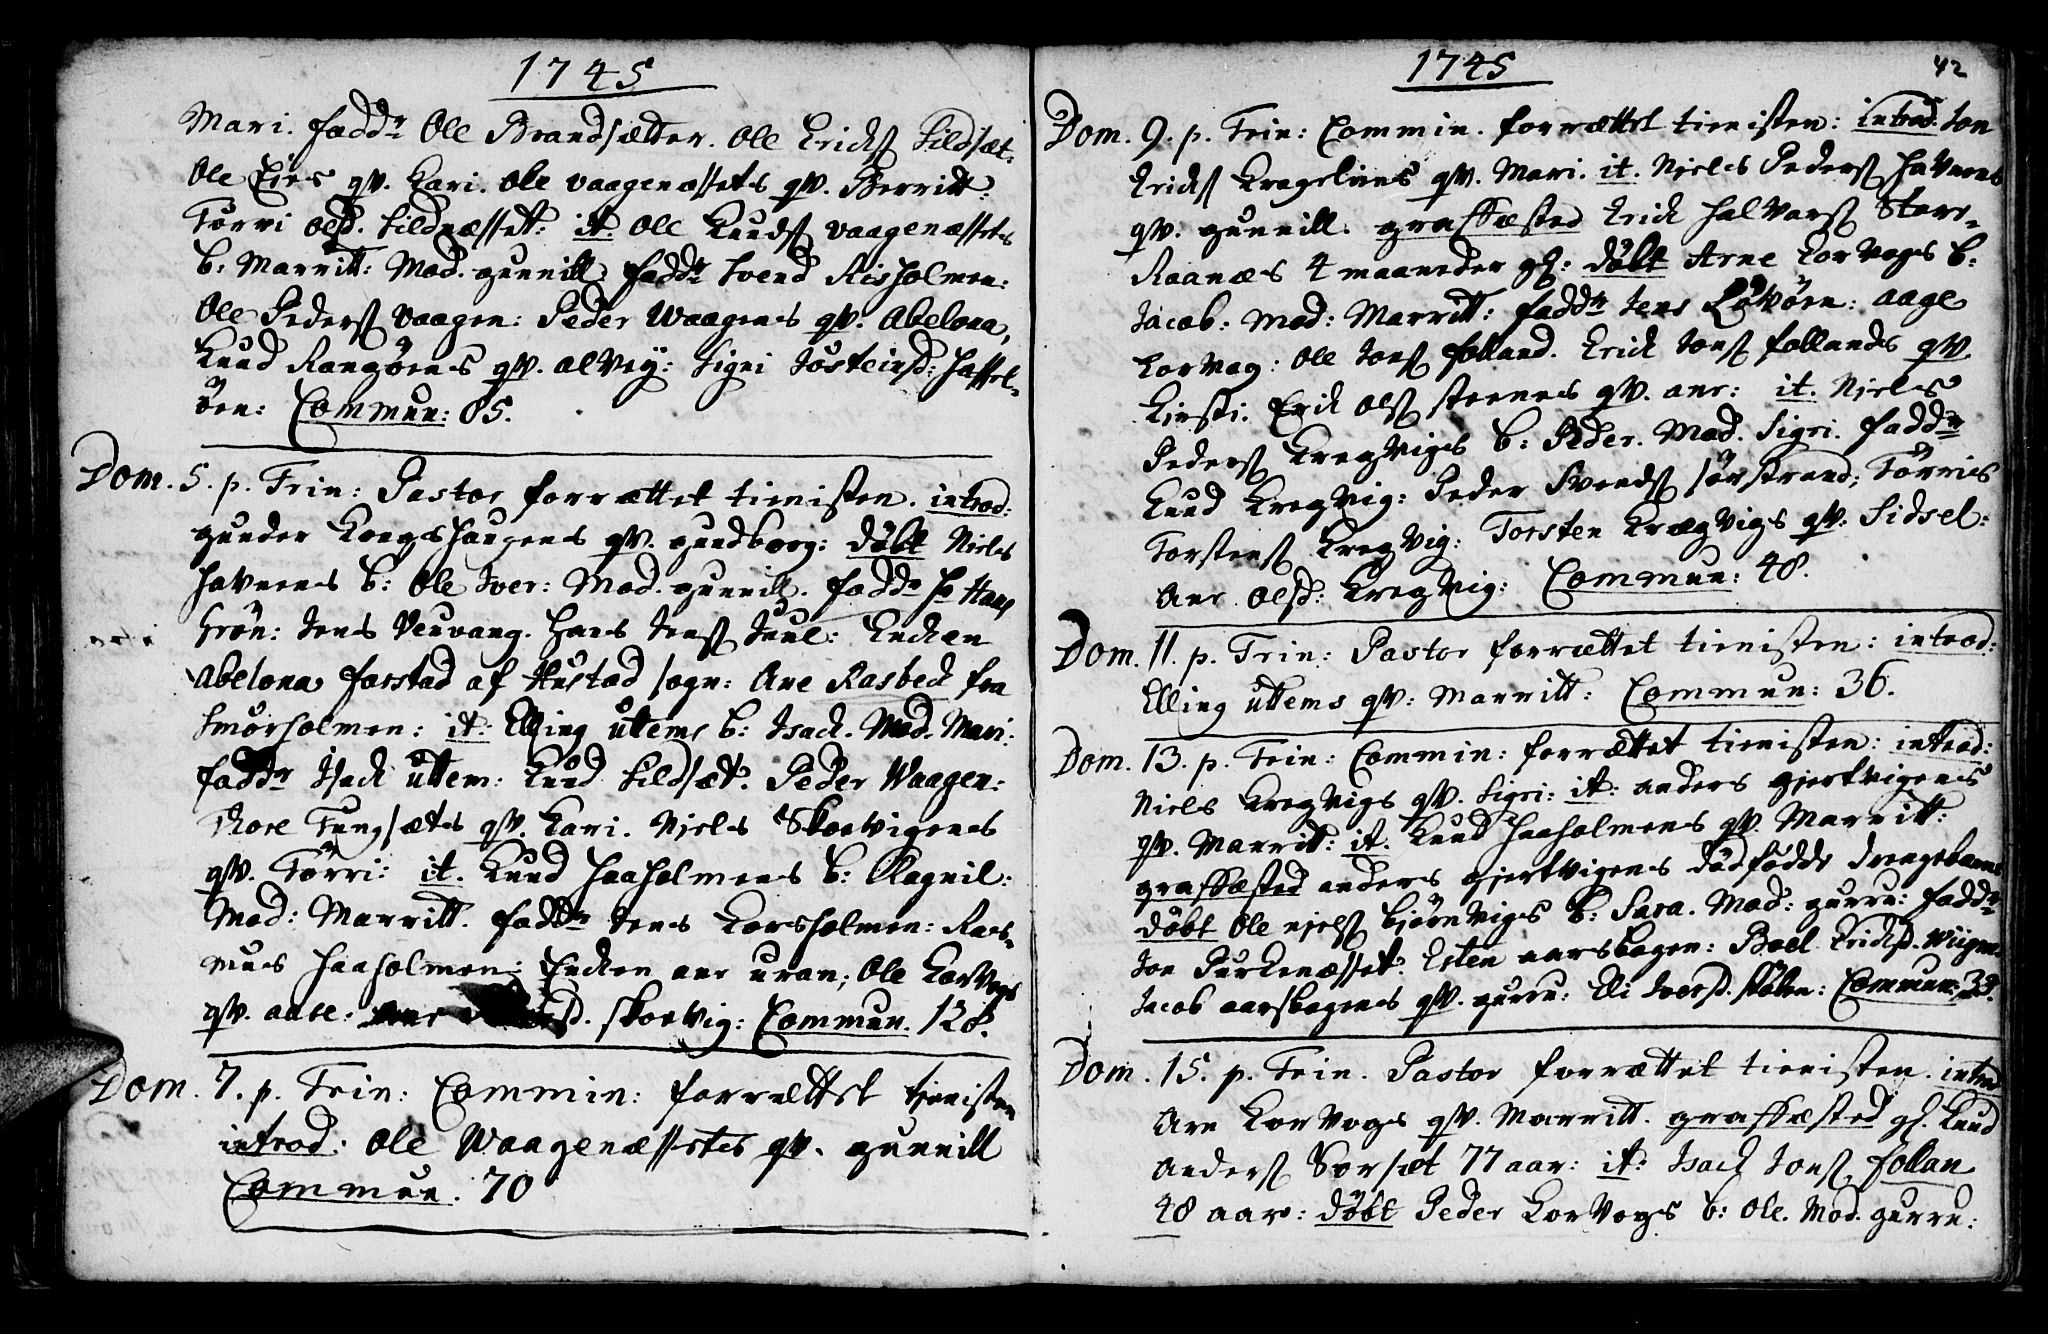 1745
Mari. fadd:r Ole Brandsætter. Ole Erichs: Sildsæt.
Ole Eies qv. Kari. Ole Vaagenæssets qv. Berritt.
Torri Olsd. Sildnæsset: it: Ole Knuds: Vaagenæssets
b: Marritt: Mod. gunnill. fadd:r Svend Risholmen:
Ole Peders: Vaagen: Peder Waagens qv. Abelona,
Knud Rangøens qv. Alvey: Sigri Josteinsd: Hassel-
öen: Commun: 85.
Dom. 5. p. Trin: Pastor forrættet tienisten. introd:
gunder Kongshaugens qv. gundborg: döbt Niels
Havnens b: Ole Iver: Mod. gunnill. fadd:r Hr Hans
Grön: Jens Vevang. Hans Jens: Juul: Encken
Abelona farstad af Hustad sogn: Ane Rasbech fra
Smörholmen: it: Elling Uttems b: Isach. Mod. Mari.
fadd:r Isach Uttem: Knud Sildsæt. Peder Waagen:
Thore Tungsæts qv. Kari. Niels Skorvigens
qv. Törri: it. Knud Haaholmens b: Ragnil:
Mod: Marritt. fadd:r Jens Korsholmen: Ras-
mus Haaholmen: Encken ane uran; Ole Korvogs
qv. aase: ane sd. Skorvig: Commun. 128.
Dom. 7. p. Trin: Commin: forrættet tjenisten
introd: Ole Waagenæssetes qv. gunnill
Commun. 70
1745 42
Dom. 9. p. Trin: Commin. forrættet tienisten: introd. Jon
Erichs: Kragelines qv. Mari. it. Niels Peders: Havnens
qv. gunnill. graffæsted Erich Halvors: Store-
Raanæs 4 maaneder gl: döbt Arne Korvogs b:
Jacob: Mod: Marritt: fadd:r Jens Løvöen: aage
Korvog: Ole Jons: folland. Erich Jons: follands qv.
Kirsti. Erich Ols: steenes qv. ane: it. Niels
Peders: Kregvigs b: Peder. Mod. Sigri. fadd:r
Knud Kregvig: Peder Svends: sörstrand; Törris
Torstens: Kregvig: Torsten Krægvigs qv. Sidsel:
Ane Olsd: Kregvig: Commun: 48.
Dom. 11. p. Trin: Pastor forrættet tienisten: introd:
Elling Uttems qv: Marritt: Commun: 36.
Dom. 13. p. Trin: Commin: forrættet tienisten: introd:
Niels Kregvigs qv. Sigri: it: anders gjertvigens
qv. Marritt: it. Knud Haaholmens qv. Marritt:
graffæsted anders gjertvigens dödfödde drengebarn
döbt Ole Niels: Bjørnvigs b: Sara. Mod: gurru: fadd:r
Jon Purkenæsset: Esten aarsbogen: Boel Erichsd. Wiigen.
Jacob aarsbogens qv. gurru: Eli Iversd. stölen: Commun:
Dom. 15. p. Trin. Pastor forrættet tienisten. introd
Arn Korvogs qv. Marritt. graffæsted gl. Knud
Anders: Sorsæt 77 aar: it: Isach Jons: follan
48 aar: döbt Peder Korvogs b: Ole. Mod. gurru: